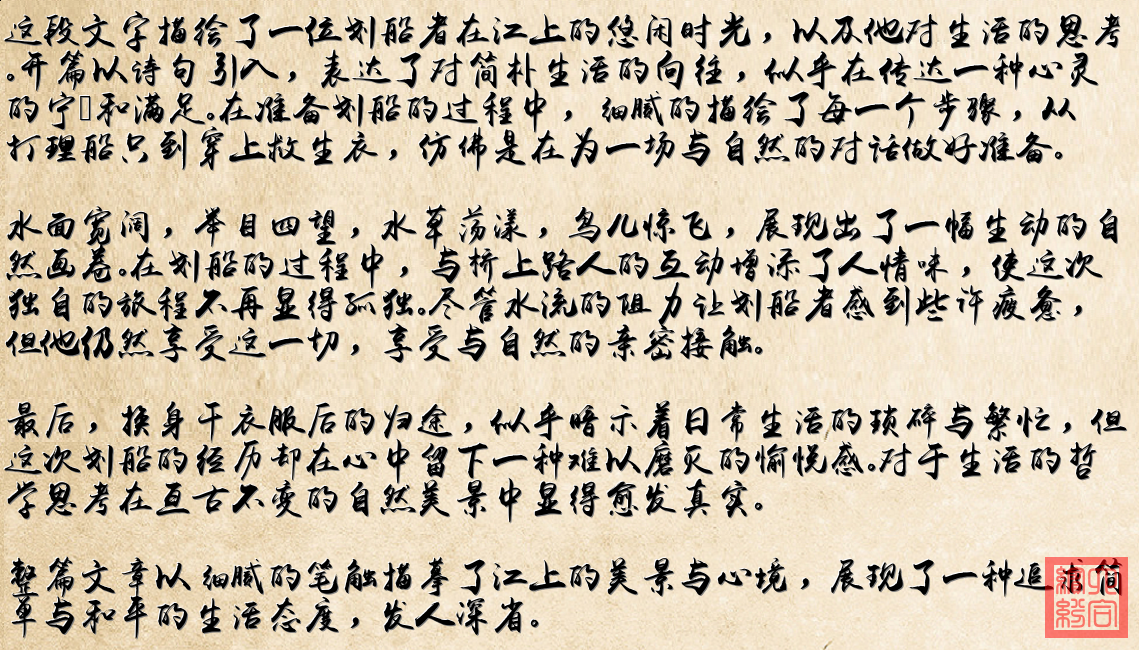 这段文字描绘了一位划船者在江上的悠闲时光，以及他对生活的思考
。开篇以诗句引入，表达了对简朴生活的向往，似乎在传达一种心灵
的宁▯和满足。在准备划船的过程中，细腻的描绘了每一个步骤，从
打理船只到穿上救生衣，仿佛是在为一场与自然的对话做好准备。
水面宽阔，举目四望，水草荡漾，鸟儿惊飞，展现出了一幅生动的自
然画卷。在划船的过程中，与桥上路人的互动增添了人情味，使这次
独自的旅程不再显得孤独。尽管水流的阻力让划船者感到些许疲惫，
但他仍然享受这一切，享受与自然的亲密接触。
最后，换身干衣服后的归途，似乎暗示着日常生活的琐碎与繁忙，但
这次划船的经历却在心中留下一种难以磨灭的愉悦感。对于生活的哲
学思考在亘古不变的自然美景中显得愈发真实。
整篇文章以细腻的笔触描摹了江上的美景与心境，展现了一种追求简
单与和平的生活态度，发人深省。